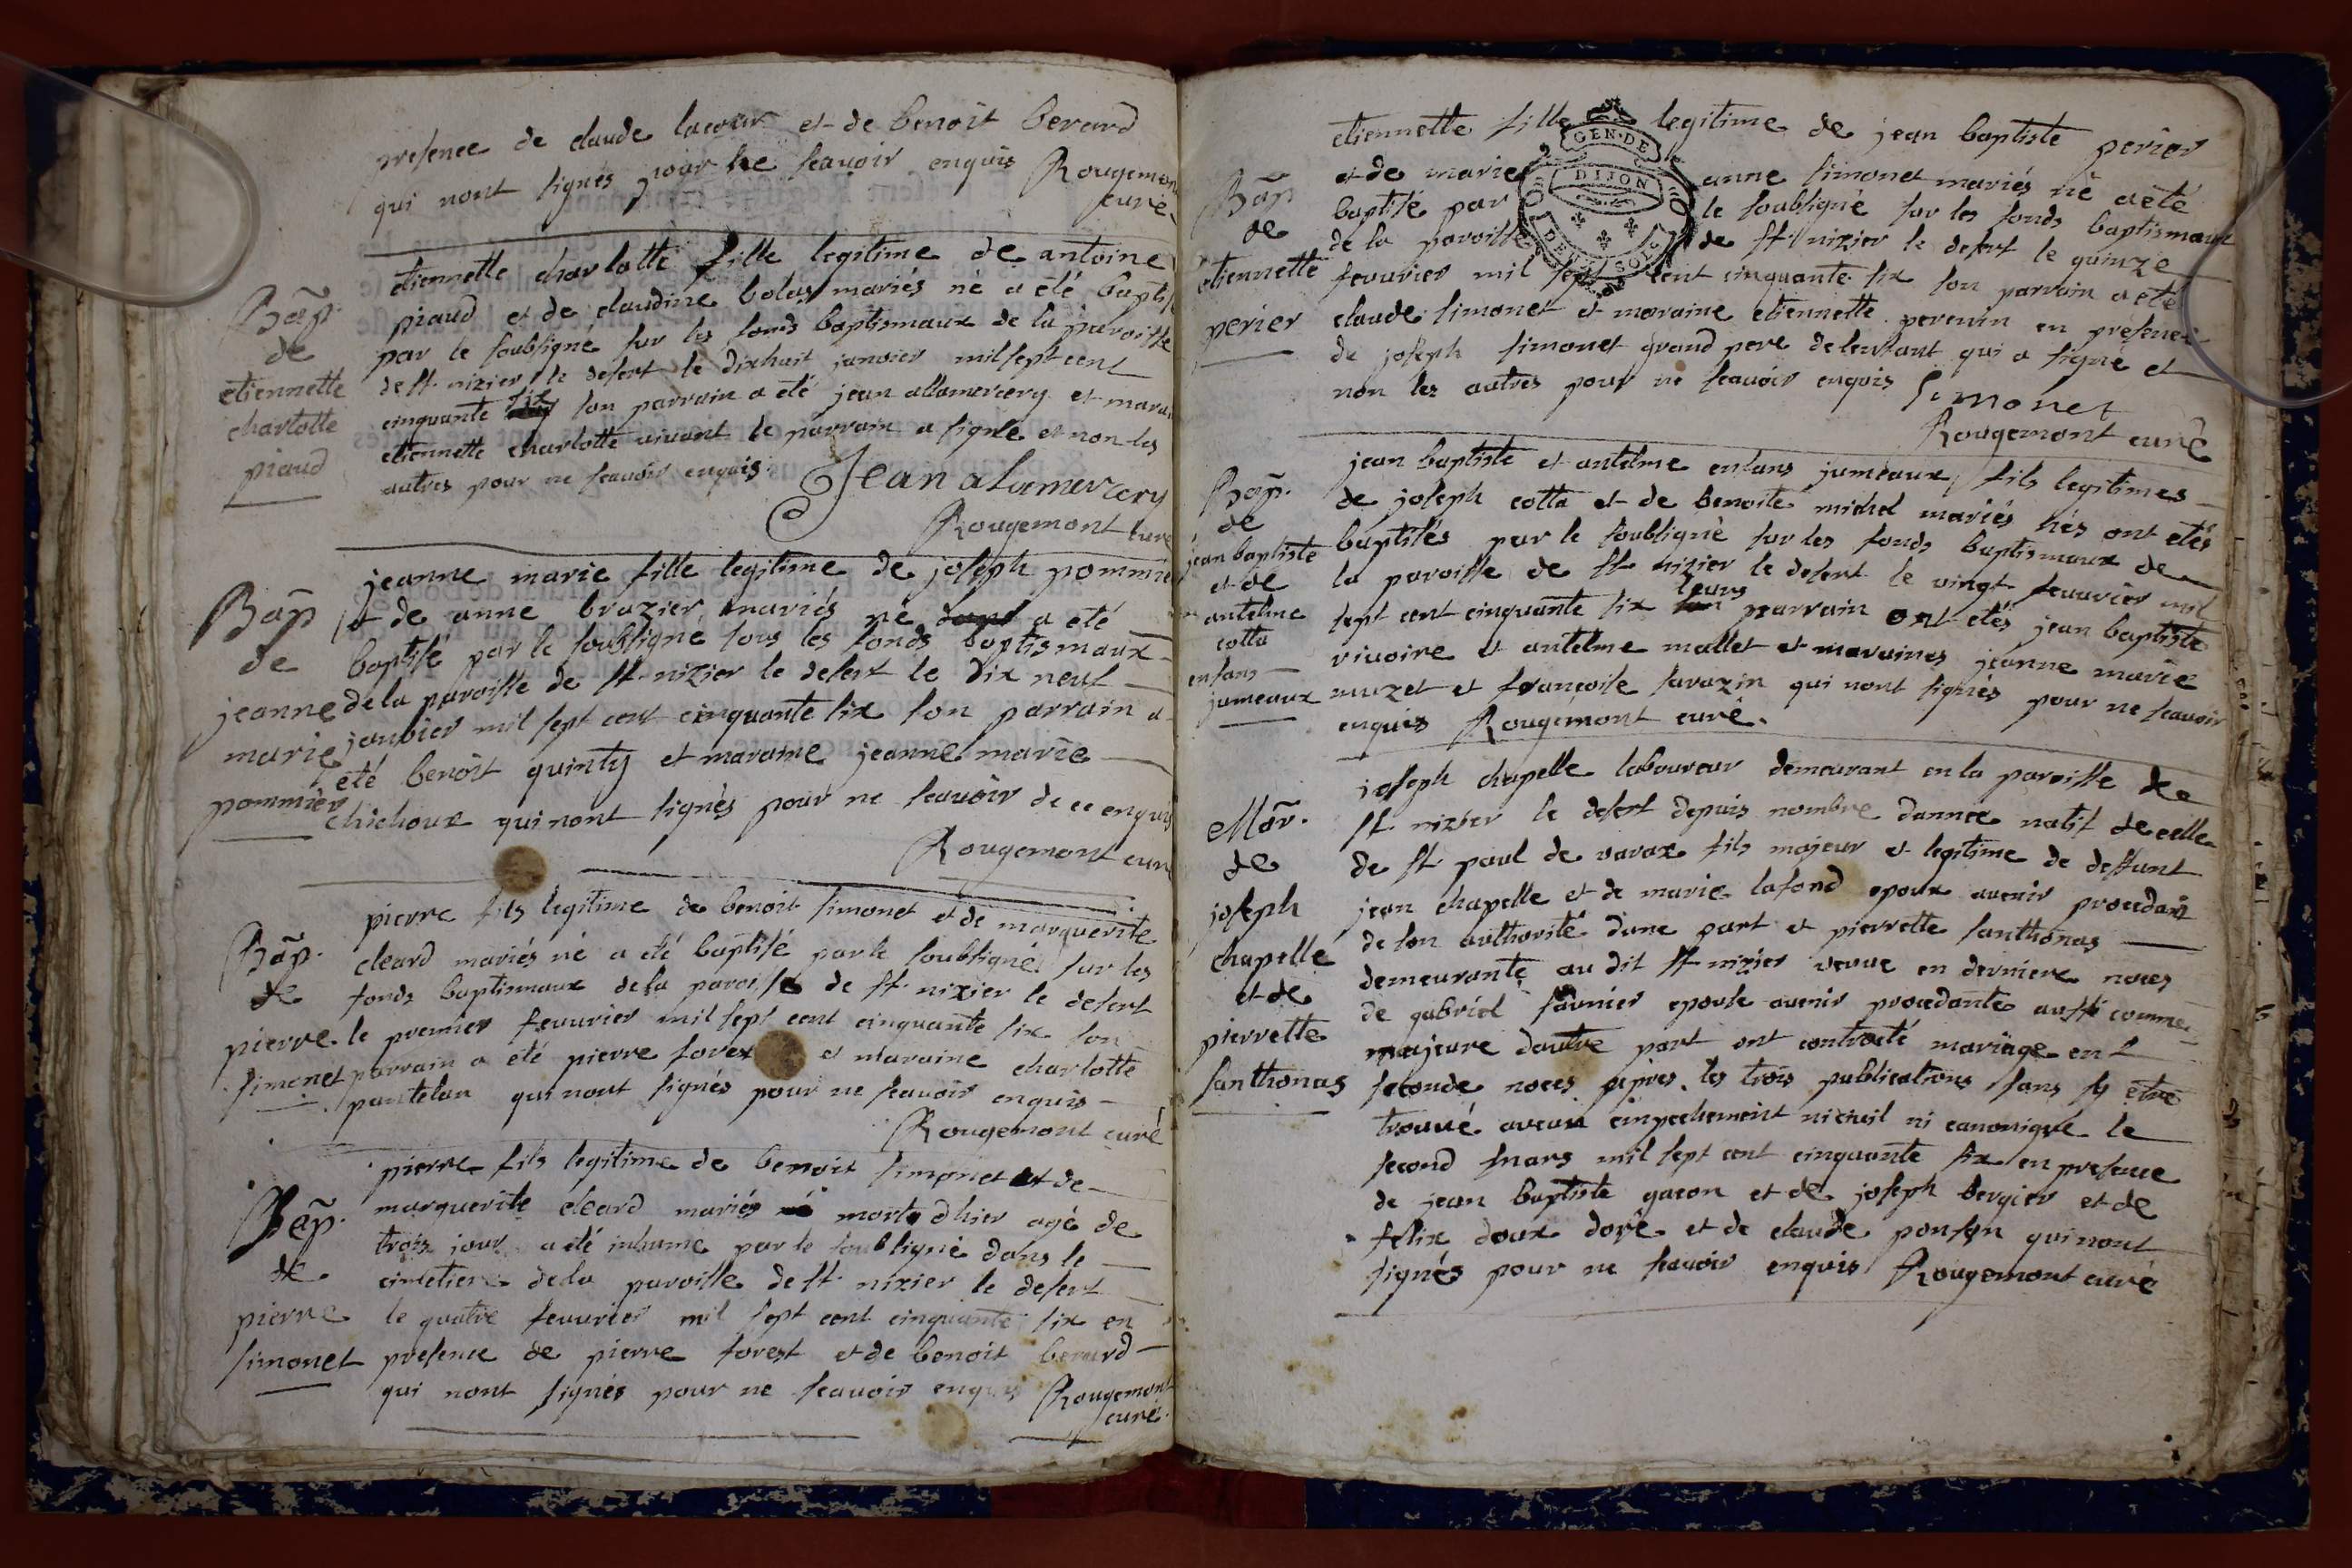 presence de claude lacour et de benoit berard
qui nont signés pour ne scavoir enquis Rougemont
curé
Bap. de etiennette charlotte piaud
etiennette charlotte fille legitime de antoine
piaud et de claudine bolas mariés né a été baptisé
par le soubsigné sur les fonds baptismaux de la paroisse
de st. nizier le desert le dixhuit janvier mil sept cent
cinquante six son parrain a été jean allamercery et marai
etiennette charlotte vivant le parrain a signé et non les
autres pour ne scavoir enquis. Jean alamercery
Rougemont curé
Bap de jeanne marie pommier
jeanne marie fille legitime de joseph pommier
et de anne brazier mariés né a été
baptisé par le soubsigné sous les fonds baptismaux
de la paroisse de st. nizier le desert le dix neuf
janvier mil sept cent cinquante six son parrain a
été benoit quinty et maraine jeanne marie
chichoux qui nont signés pour ne scavoir de ce enquis
Rougemont curé
Bap. de pierre simonet
pierre fils legitime de benoit simonet et de marguerite
cleard mariés né a été baptisé par le soubsigné sur les
fonds baptismaux de la paroisse de st. nizier le desert
le premier fevurier mil sept cent cinquante six son
parrain a été pierre forest et maraine charlotte
pantelan qui nont signés pour ne scavoir enquis
Rougemont curé
Bap. de pierre simonet
pierre fils legitime de benoit simonet et de
marguerite cleard mariés né morte dhier agé de
trois jour a été inhume par le soubsigné dans le
cimetiere de la paroisse de st. nizier le desert
le quatre fevurier mil sept cent cinquante six en
presence de pierre forest et de benoit berard
qui nont signés pour ne scavoir enquis Rougemont
curé.
Bap de etiennette perier
etiennette fille legitime de jean baptiste perier
et de marie anne simonet mariés né a été
baptisé par le soubsigné sur les fonds baptismaux
de la paroisse de st. nizier le desert le quinze
fevurier mil sept cent cinquante six son parrain a été
claude simonet et maraine etiennette perenin en presence
de joseph simonet grand pere de lenfant qui a signé et
non les autres pour ne scavoir enquis Simonet
Rougemont curé
GEN. DE
DIJON
DEUX SOLS
Bap. de jean baptiste et de antelme cotta enfans jumeaux
jean baptiste et antelme enfans jumeaux fils legitimes
de joseph cotta et de benoite michel mariés nés ont étés
baptisés par le soubsigné sur les fonds baptismaux de
la paroisse de st nizier le desert le vingt fevurier mil
sept cent cinquante six leurs parrain ont étés jean baptiste
vivoire et antelme mallet et maraines jeanne marie
muzet et françoise sarazin qui nont signés pour ne scavoir
enquis Rougemont curé.
Mar. de joseph chapelle et de pierrette santhonas
joseph chapelle laboureur demeurant en la paroisse de
st. nizier le desert depuis nombre dannée natif de celle
de st paul de varax fils majeur et legitime de deffunt
jean chapelle et de marie lafond epoux avenir procedant
de son authorité dune part et pierrette santhonas
demeurante au dit st nizier veuve en derniere noces
de gabriel faunier epouse avenir procedante aussi comme
majeure dautre part ont contracté mariage en
seconde noces apres les trois publications sans sy etre
trouvé aucun empechement ni civil ni canonique le
second mars mil sept cent cinquante six en presence
de jean baptiste gacon et de joseph bergier et de
felix doux doré et de claude ponson qui nont
signés pour ne scavoir enquis Rougemont curé